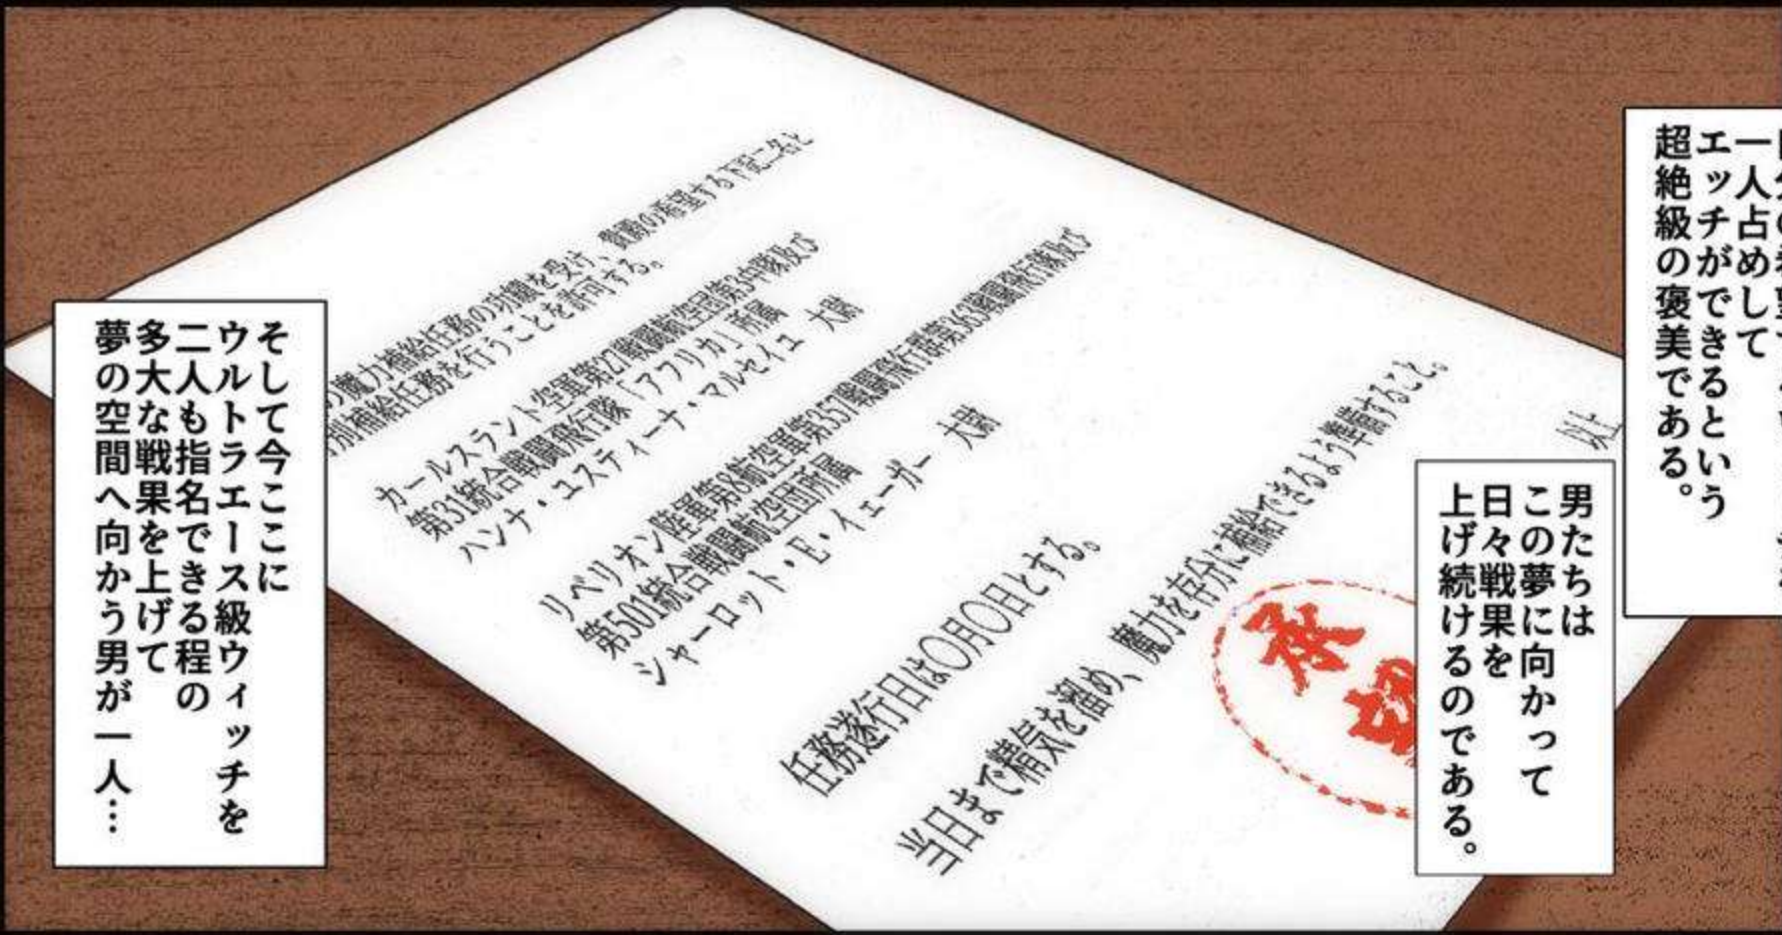 一人占めして
エッチができるという
超絶級の褒美である。
男たちは
この夢に向かって
日々戦果を
上げ続けるのである。
魔力補給任務の功績を受け、貴殿の希望する下記二名と
別補給任務を行うことを許可する。
カールスラント空軍第27戦闘航空団第3中隊及び
第31統合戦闘飛行隊「アフリカ」所属
ハンナ・ユスティーナ・マルセイユ 大尉
リベリオン陸軍第8航空軍第357戦闘飛行群第363戦闘飛行隊及び
第501統合戦闘航空団所属
シャーロット・E・イェーガー 大尉
任務遂行日は〇月〇日とする。
当日まで精気を溜め、魔力を存分に補給できるよう準備すること。
以上
承
認
そして今ここに
ウルトラエース級ウィッチを
二人も指名できる程の
多大な戦果を上げて
夢の空間へ向かう男が一人…